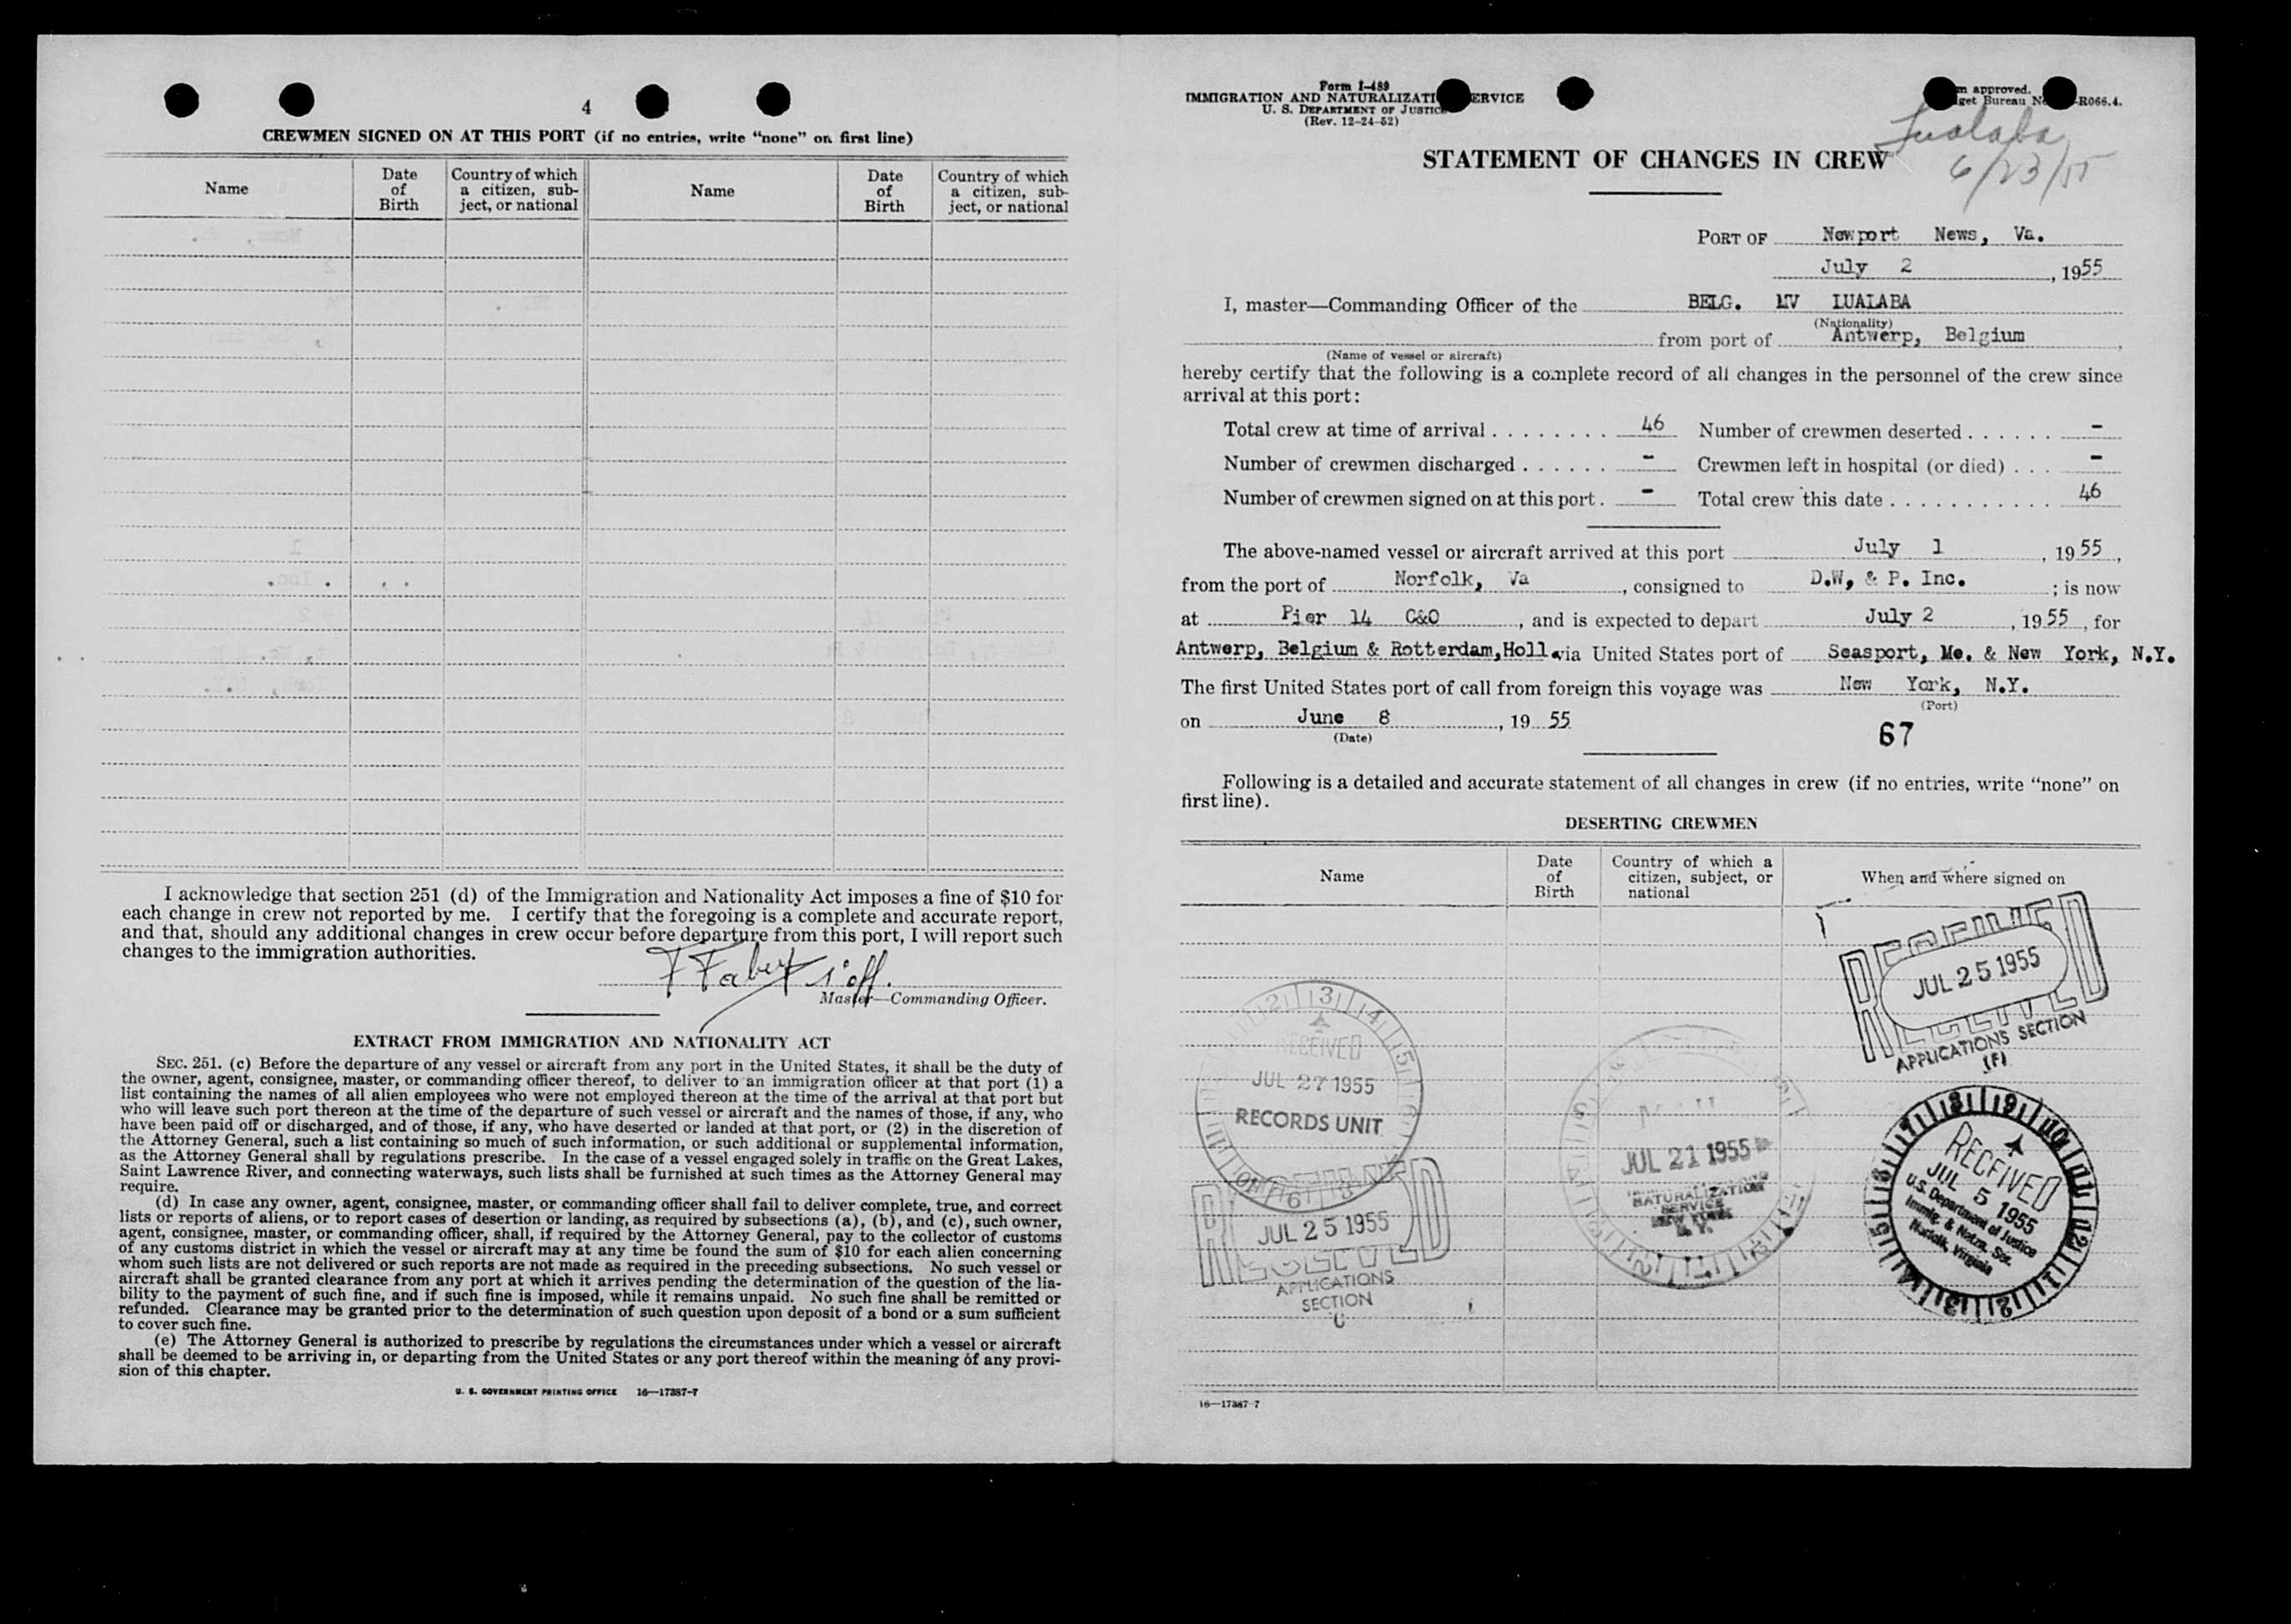 4
CREWMEN SIGNED ON AT THIS PORT (if no entries, write "none" on first line)
Name
Date of Birth
Country of which a citizen, sub-ject, or national
Name
Date of Birth
Country of which a citizen, sub-ject, or national
I acknowledge that section 251 (d) of the Immigration and Nationality Act imposes a fine of $10 for
each change in crew not reported by me. I certify that the foregoing is a complete and accurate report,
and that, should any additional changes in crew occur before departure from this port, I will report such
changes to the immigration authorities.
Master—Commanding Officer.
EXTRACT FROM IMMIGRATION AND NATIONALITY ACT
SEC. 251. (c) Before the departure of any vessel or aircraft from any port in the United States, it shall be the duty of
the owner, agent, consignee, master, or commanding officer thereof, to deliver to an immigration officer at that port (1) a
list containing the names of all alien employees who were not employed thereon at the time of the arrival at that port but
who will leave such port thereon at the time of the departure of such vessel or aircraft and the names of those, if any, who
have been paid off or discharged, and of those, if any, who have deserted or landed at that port, or (2) in the discretion of
the Attorney General, such a list containing so much of such information, or such additional or supplemental information,
as the Attorney General shall by regulations prescribe. In the case of a vessel engaged solely in traffic on the Great Lakes,
Saint Lawrence River, and connecting waterways, such lists shall be furnished at such times as the Attorney General may
require.
(d) In case any owner, agent, consignee, master, or commanding officer shall fail to deliver complete, true, and correct
lists or reports of aliens, or to report cases of desertion or landing, as required by subsections (a), (b), and (c), such owner,
agent, consignee, master, or commanding officer, shall, if required by the Attorney General, pay to the collector of customs
of any customs district in which the vessel or aircraft may at any time be found the sum of $10 for each alien concerning
whom such lists are not delivered or such reports are not made as required in the preceding subsections. No such vessel or
aircraft shall be granted clearance from any port at which it arrives pending the determination of the question of the lia-
bility to the payment of such fine, and if such fine is imposed, while it remains unpaid. No such fine shall be remitted or
refunded. Clearance may be granted prior to the determination of such question upon deposit of a bond or a sum sufficient
to cover such fine.
(e) The Attorney General is authorized to prescribe by regulations the circumstances under which a vessel or aircraft
shall be deemed to be arriving in, or departing from the United States or any port thereof within the meaning of any provi-
sion of this chapter.
U. S. GOVERNMENT PRINTING OFFICE 16—17387-7
Form I-489
IMMIGRATION AND NATURALIZATI ERVICE
U. S. DEPARTMENT OF JUSTICE
(Rev. 12-24-52)
m approved.
get Bureau No -R066.4.
Lualaba
6/23/55
STATEMENT OF CHANGES IN CREW
PORT OF Newport News, Va.
July 2, 1955
I, master—Commanding Officer of the BELG. MV LUALABA
(Nationality)
from port of Antwerp, Belgium,
(Name of vessel or aircraft)
hereby certify that the following is a complete record of all changes in the personnel of the crew since
arrival at this port:
Total crew at time of arrival . . . . . . . . 46 Number of crewmen deserted . . . . . . -
Number of crewmen discharged . . . . . . - Crewmen left in hospital (or died) . . . -
Number of crewmen signed on at this port . - Total crew this date . . . . . . . . . . . 46
The above-named vessel or aircraft arrived at this port July 1, 1955,
from the port of Norfolk, Va, consigned to D.W, & P. Inc.; is now
at Pier 14 C&O, and is expected to depart July 2, 1955, for
Antwerp, Belgium & Rotterdam,Holl. via United States port of Seasport, Me. & New York, N.Y.
The first United States port of call from foreign this voyage was New York, N.Y.
(Port)
on June 8, 1955
(Date)
67
Following is a detailed and accurate statement of all changes in crew (if no entries, write "none" on
first line).
DESERTING CREWMEN
Name
Date of Birth
Country of which a citizen, subject, or national
When and where signed on
RECEIVED
JUL 25 1955
APPLICATIONS SECTION
(F)
RECEIVED
JUL 27 1955
RECORDS UNIT
RECEIVED
JUL 25 1955
APPLICATIONS
SECTION
C
JUL 21 1955
NATURALIZATION
SERVICE
NEW YORK
N. Y.
RECEIVED
JUL 5 1955
U.S. Department of Justice
Immig. & Natzn. Ser.
Norfolk, Virginia
16—17387-7